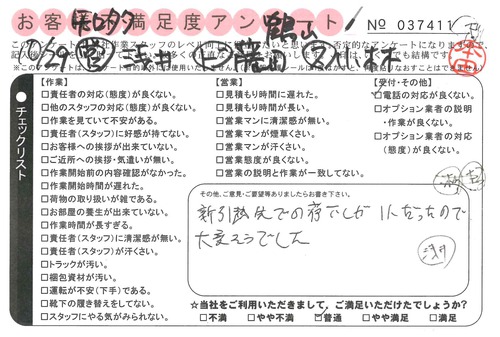 お客様満足度アンケート
№ 037411
チェックリスト
【作業】
□責任者の対応(態度)が良くない。
□他のスタッフの対応(態度)が良くない。
□作業を見ていて不安がある。
□責任者(スタッフ)に好感が持てない。
□お客様への挨拶が出来ていない。
□ご近所への挨拶・気遣いが無い。
□作業開始前の内容確認がなかった。
□作業開始時間が遅れた。
□荷物の取り扱いが雑である。
□お部屋の養生が出来ていない。
□作業時間が長すぎる。
□責任者(スタッフ)に清潔感が無い。
□責任者(スタッフ)が汗くさい。
□トラックが汚い。
□梱包資材が汚い。
□運転が不安(下手)である。
□靴下の履き替えをしてない。
□スタッフにやる気がみられない。
【営業】
□見積もり時間に遅れた。
□見積もり時間が長い。
□営業マンに清潔感が無い。
□営業マンが煙草くさい。
□営業マンが汗くさい。
□営業態度が良くない。
□営業の説明と作業が一致してない。
【受付・その他】
電話の対応が良くない。
□オプション業者の説明
・作業が良くない。
□オプション業者の対応
(態度)が良くない。
その他、ご意見・ご要望等ありましたらお書き下さい。
新引越先での荷下しが1人だったので
大変そうでした
浅井
☆当社をご利用いただきまして、ご満足いただけたでしょうか?
□不満 □やや不満 普通 □やや満足 □満足